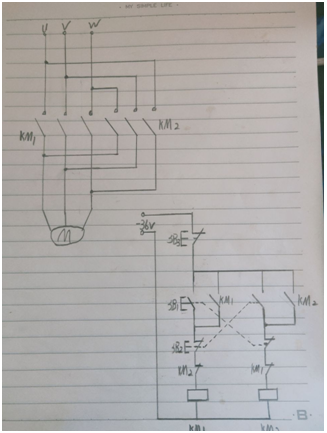 MY SIMPLE LIFE
U V W
KM1 KM2
M
~36V
SB3
SB1 KM1 KM2
SB2
KM2 KM1
KM1 KM2
B